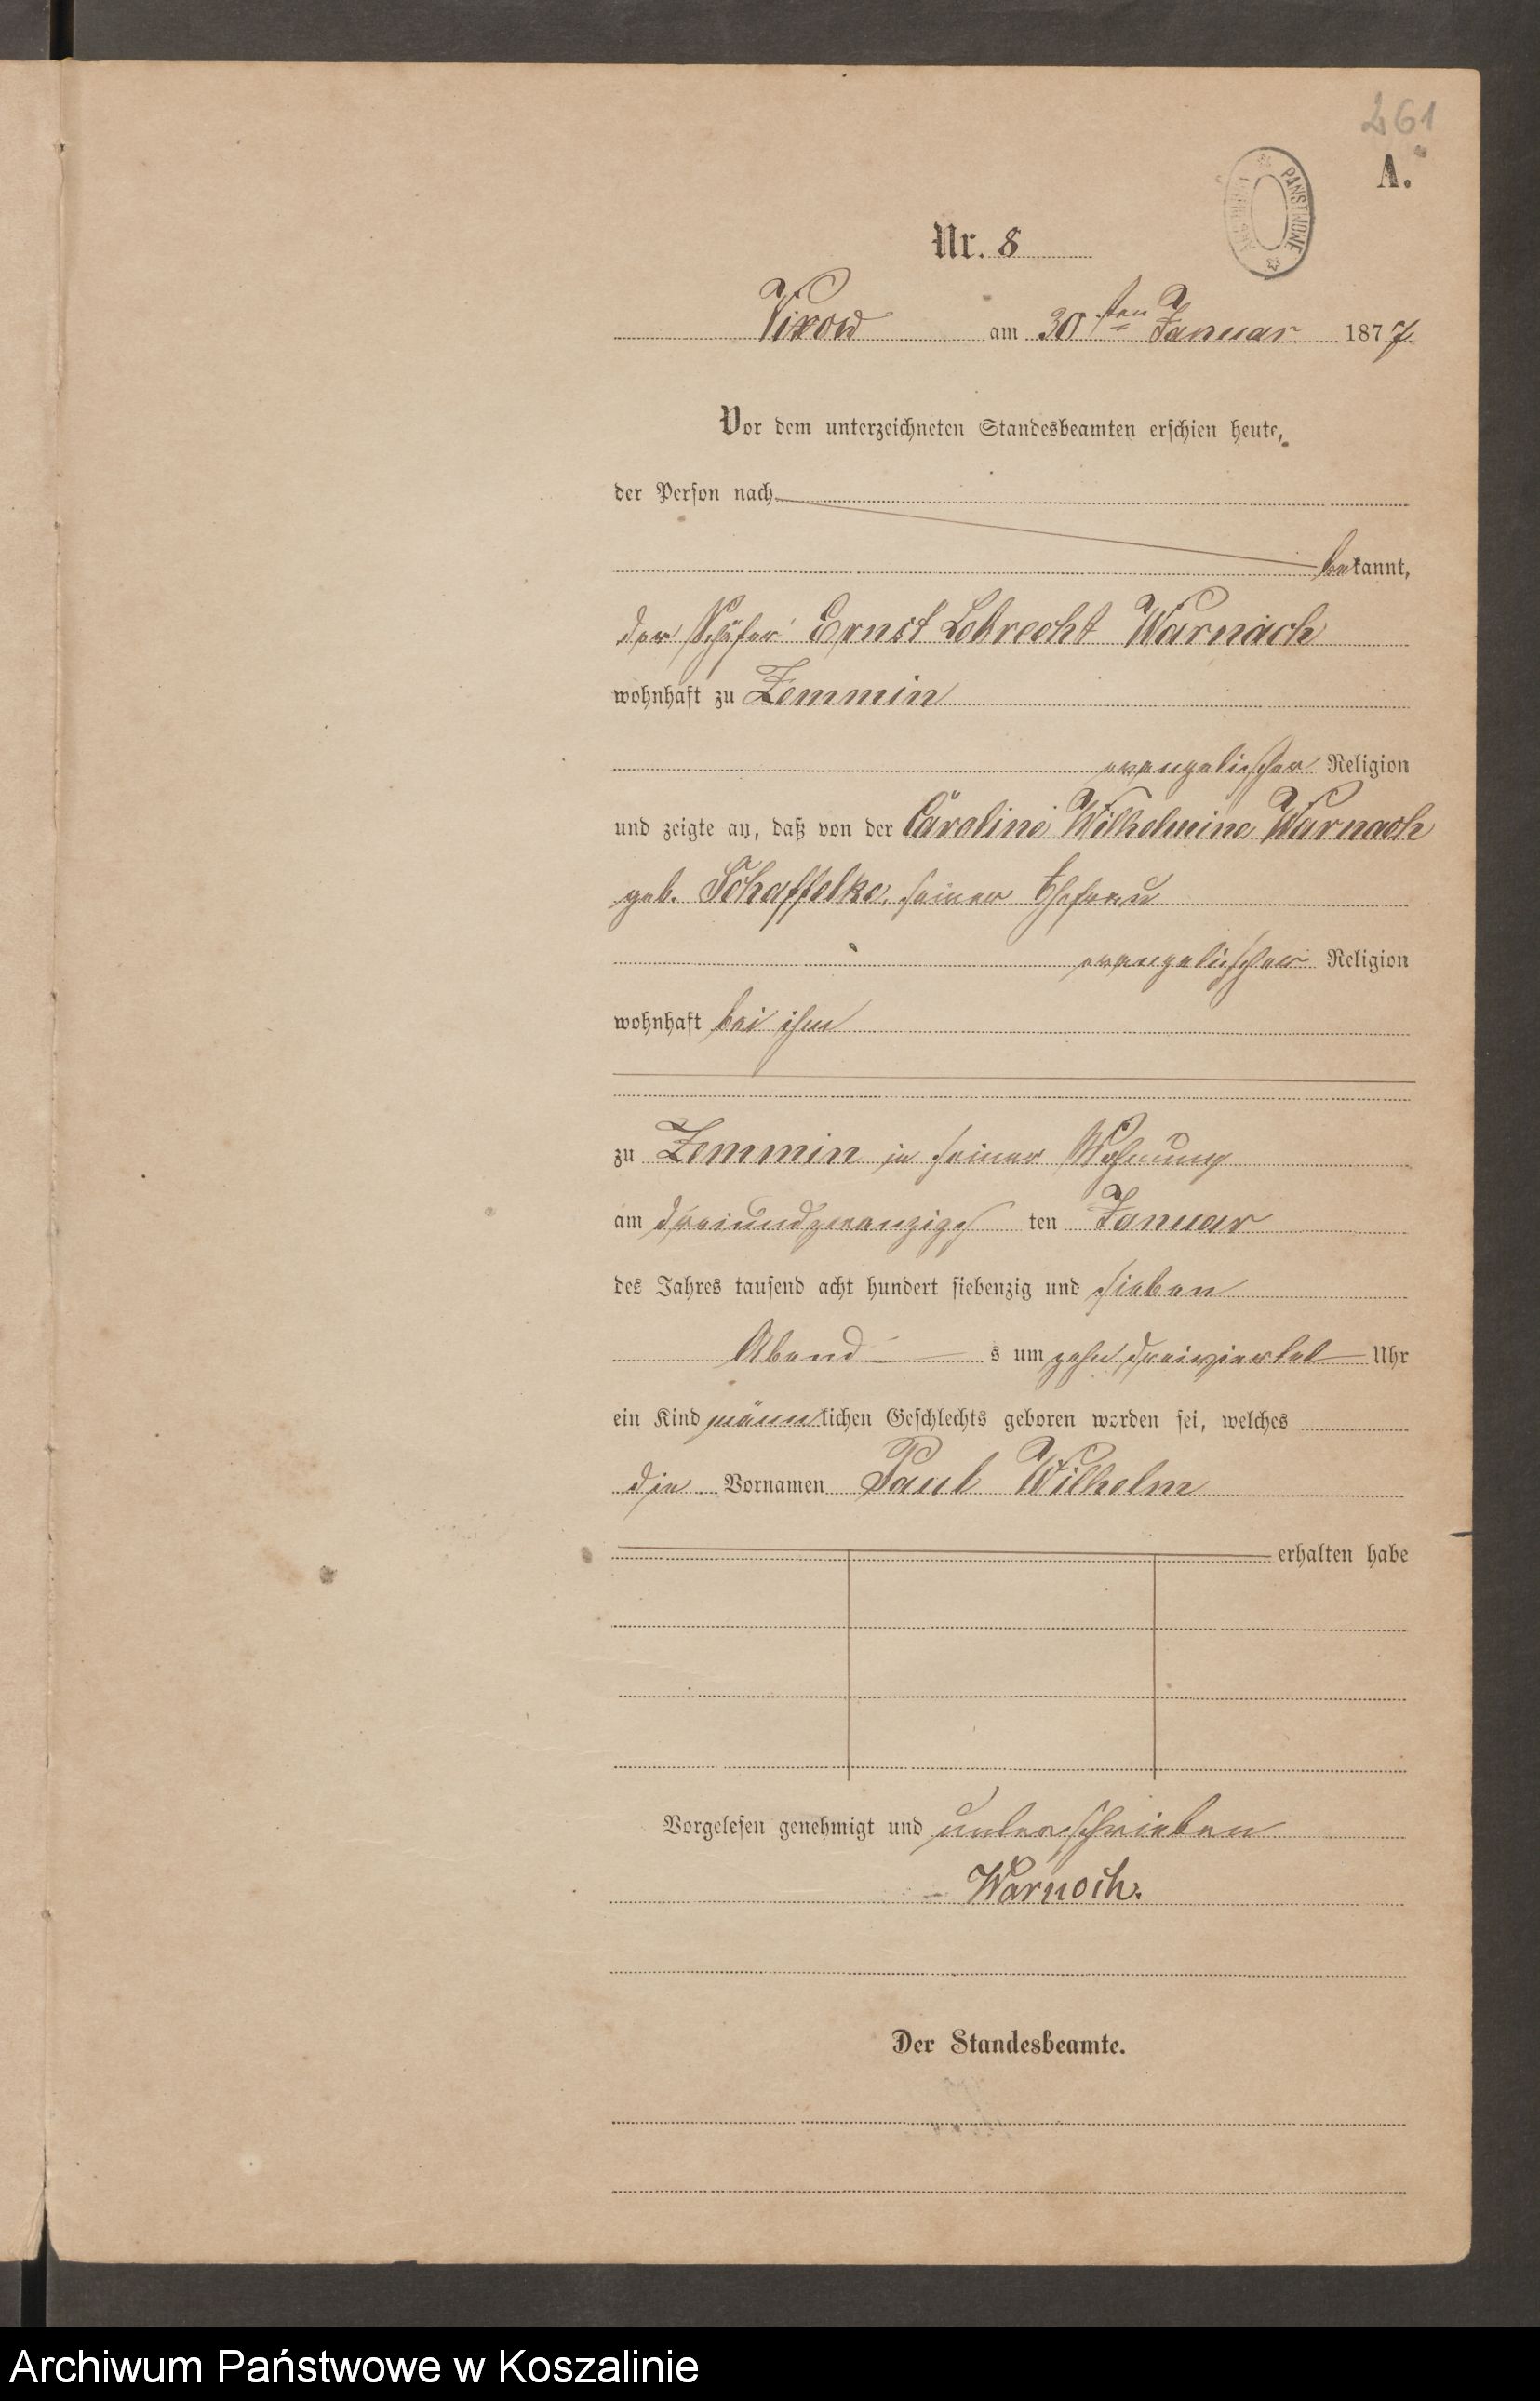 261
A.
PAŃSTWOWE
Nr. 8
Vixow am 30sten Januar 1877.
Vor dem unterzeichneten Standesbeamten erschien heute,
der Person nach
bekannt,
der Schäfer Ernst Lebrecht Warnach
wohnhaft zu Zemmin
evangelischer Religion
und zeigte an, daß von der Caroline Wilhelmine Warnach
geb. Schaffelke, seiner Ehefrau
evangelischer Religion
wohnhaft bei ihm
zu Zemmin in seiner Wohnung
am dreiundzwanzigsten Januar
des Jahres tausend acht hundert siebenzig und sieben
Abends um zehn dreiviertel Uhr
ein Kind männlichen Geschlechts geboren worden sei, welches
die Vornamen Paul Wilhelm
erhalten habe
Vorgelesen genehmigt und unterschrieben
Warnoch.
Der Standesbeamte.
Archiwum Państwowe w Koszalinie